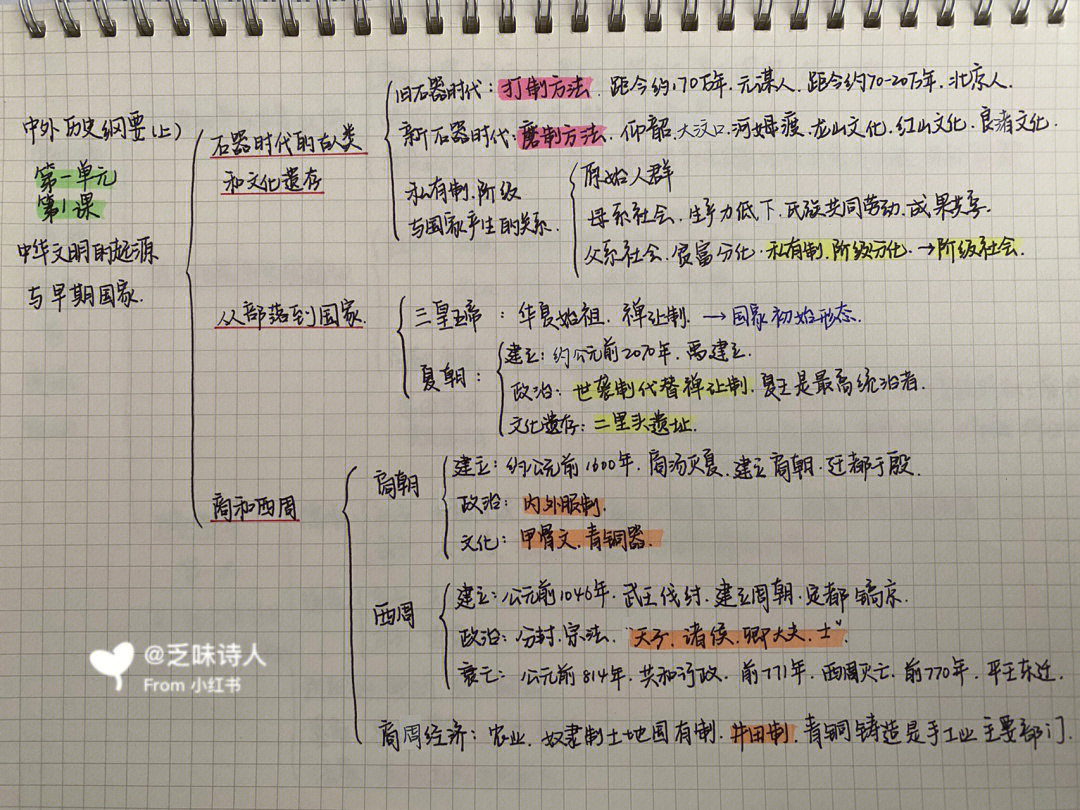 中外历史纲要(上)
第一单元
第1课
中华文明的起源
与早期国家.
石器时代的古人类
和文化遗存
旧石器时代: 打制方法. 距今约170万年. 元谋人. 距今约70-20万年. 北京人.
新石器时代: 磨制方法. 仰韶. 大汶口. 河姆渡. 龙山文化. 红山文化. 良渚文化.
私有制.阶级
与国家产生的关系.
原始人群
母系社会. 生产力低下. 氏族共同劳动. 成果共享.
父系社会. 贫富分化. 私有制. 阶级分化. →阶级社会.
从部落到国家.
三皇五帝 : 华夏始祖. 禅让制. →国家初始形态.
夏朝:
建立: 约公元前2070年. 禹建立.
政治: 世袭制代替禅让制. 夏王是最高统治者.
文化遗存: 二里头遗址.
商和西周
商朝
建立: 约公元前1600年. 商汤灭夏. 建立商朝. 迁都于殷.
政治: 内外服制.
文化: 甲骨文. 青铜器.
西周
建立: 公元前1046年. 武王伐纣. 建立周朝. 定都镐京.
政治: 分封. 宗法. "天子. 诸侯. 卿大夫. 士".
衰亡: 公元前814年. 共和行政. 前771年. 西周灭亡. 前770年. 平王东迁.
商周经济: 农业. 奴隶制土地国有制. 井田制. 青铜铸造是手工业主要部门.
@乏味诗人
From 小红书